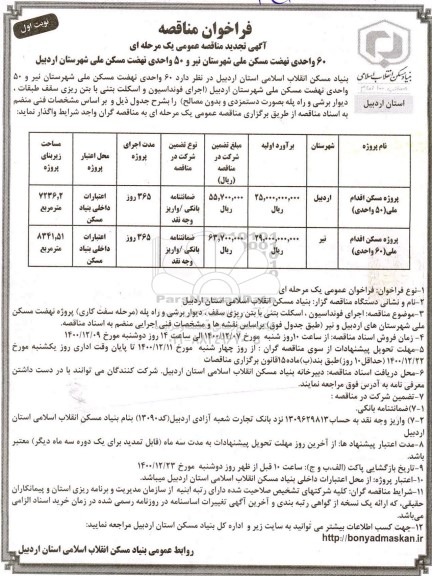 نوبت اول
فراخوان مناقصه
آگهی تجدید مناقصه عمومی یک مرحله ای
۶۰ واحدی نهضت مسکن ملی شهرستان نیر و ۵۰ واحدی نهضت مسکن ملی شهرستان اردبیل
بنیاد مسکن انقلاب اسلامی
استان اردبیل
بنیاد مسکن انقلاب اسلامی استان اردبیل در نظر دارد ۶۰ واحدی نهضت مسکن ملی شهرستان نیر و ۵۰
واحدی نهضت مسکن ملی شهرستان اردبیل (اجرای فونداسیون و اسکلت بتنی با بتن ریزی سقف طبقات ،
دیوار برشی و راه پله بصورت دستمزدی و بدون مصالح) را بشرح جدول ذیل و بر اساس مشخصات فنی منضم
به اسناد مناقصه از طریق برگزاری مناقصه عمومی یک مرحله ای به مناقصه گران واجد شرایط واگذار نماید:
نام پروژه | شهرستان | برآورد اولیه | مبلغ تضمین شرکت در مناقصه (ریال) | نوع تضمین شرکت در مناقصه | مدت اجرای پروژه | محل اعتبار پروژه | مساحت زیربنای پروژه
پروژه مسکن اقدام ملی(۵۰ واحدی) | اردبیل | ۲۵,۰۰۰,۰۰۰,۰۰۰ ریال | ۵۵,۷۰۰,۰۰۰ ریال | ضمانتنامه بانکی /واریز وجه نقد | ۳۶۵ روز | اعتبارات داخلی بنیاد مسکن | ۷۲۳۶,۲ مترمربع
پروژه مسکن اقدام ملی(۶۰ واحدی) | نیر | ۲۹,۰۰۰,۰۰۰,۰۰۰ ریال | ۶۳,۷۰۰,۰۰۰ ریال | ضمانتنامه بانکی /واریز وجه نقد | ۳۶۵ روز | اعتبارات داخلی بنیاد مسکن | ۸۳۴۱,۵۱ مترمربع
۱-نوع فراخوان: فراخوان عمومی یک مرحله ای
۲-نام و نشانی دستگاه مناقصه گزار: بنیاد مسکن انقلاب اسلامی استان اردبیل
۳-موضوع مناقصه: اجرای فونداسیون ، اسکلت بتنی با بتن ریزی سقف ، دیوار برشی و راه پله (مرحله سفت کاری) پروژه نهضت مسکن
ملی شهرستان های اردبیل و نیر (طبق جدول فوق) براساس نقشه ها و مشخصات فنی اجرایی منضم به اسناد مناقصه.
۴- زمان فروش اسناد مناقصه: از ساعت ۱۰روز شنبه مورخ ۱۴۰۰/۱۲/۰۷ الی ساعت ۱۴ روز دوشنبه مورخ ۱۴۰۰/۱۲/۰۹
۵-مهلت تحویل پیشنهادات از سوی مناقصه گران : از روز چهار شنبه مورخ ۱۴۰۰/۱۲/۱۱ تا پایان وقت اداری روز یکشنبه مورخ
۱۴۰۰/۱۲/۲۲ (حداقل ۱۰روز)طبق بند(ب)ماده۱۵قانون برگزاری مناقصات
۶-محل دریافت اسناد مناقصه: دبیرخانه بنیاد مسکن انقلاب اسلامی استان اردبیل. شرکت کنندگان می توانند با در دست داشتن
معرفی نامه به آدرس فوق مراجعه نمایند.
۷-تضمین شرکت در مناقصه :
۷-۱)ضمانتنامه بانکی.
۷-۲) واریز وجه نقد به حساب۱۳۰۹۶۲۹۸۱۳ نزد بانک تجارت شعبه آزادی اردبیل(کد۱۳۰۹۰) بنام بنیاد مسکن انقلاب اسلامی استان
اردبیل
۸-مدت اعتبار پیشنهاد ها: از آخرین روز مهلت تحویل پیشنهادات به مدت سه ماه (قابل تمدید برای یک دوره سه ماه دیگر) معتبر
باشد.
۹-تاریخ بازگشایی پاکت (الف،ب و ج): ساعت ۱۰ قبل از ظهر روز دوشنبه مورخ ۱۴۰۰/۱۲/۲۳
۱۰-اعتبار پروژه: از محل اعتبارات داخلی بنیاد مسکن انقلاب اسلامی استان اردبیل میباشد.
۱۱-شرایط مناقصه گران: کلیه شرکتهای تشخیص صلاحیت شده دارای رتبه ابنیه از سازمان مدیریت و برنامه ریزی استان و پیمانکاران
حقیقی، که ارائه یک نسخه از گواهی رتبه بندی و آخرین آگهی تغییرات اساسنامه در روزنامه رسمی شده در زمان خرید اسناد الزامی
می‌باشد.
۱۲-جهت کسب اطلاعات بیشتر می توانید به سایت زیر و اداره کل بنیاد مسکن استان اردبیل مراجعه نمایید:
http://bonyadmaskan.ir
روابط عمومی بنیاد مسکن انقلاب اسلامی استان اردبیل